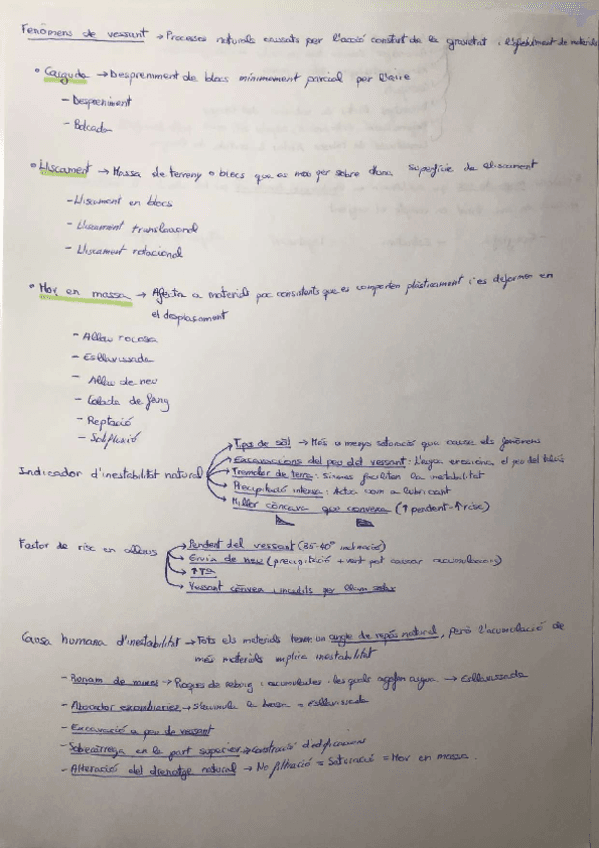 Fenòmens de vessant → Processos naturals causats per l'acció constant de la gravetat i l'esfondrament de materials
• Caiguda → Despreniment de blocs mínimament parcial per l'aire
- Despreniment
- Bolcada
• Lliscament → Massa de terreny o blocs que es mou per sobre d'una superfície de lliscament
- Lliscament en blocs
- Lliscament translacional
- Lliscament rotacional
• Mov en massa → Afecta a materials poc consistents que es comporten plàsticament i es deformen en
el desplaçament
- Allau rocosa
- Esllavissada
- Allau de neu
- Colada de fang
- Reptació
- Solifluxió
Indicador d'inestabilitat natural
Tipus de sòl → Més o menys saturació que cause els fenòmens
Excavacions del peu del vessant: L'aigua erosiona el peu del
Tremolor de terra: Sismes faciliten la inestabilitat
Precipitació intensa: Actua com a lubricant
Millor còncava que convexa (↑pendent-↑risc)
Factor de risc en allaus
Pendent del vessant (35-40° inclinació)
Gruix de neu (precipitació + vent pot causar acumulacions)
↑Tª
Vessant convexa i inculits per
Causa humana d'inestabilitat → Tots els materials tenen un angle de repòs natural, però l'acumulació de
més materials implica inestabilitat
- Runam de mines → Roques de rebuig acumulades les quals agafen aigua → Esllavissada
- Abocador escombraries → S'acumula la massa = esllavissada
- Excavació a peu de vessant
- Sobecàrrega en la part superior → construcció d'edificacions
- Alteració del drenatge natural → No filtració = Saturació = Mov en massa.